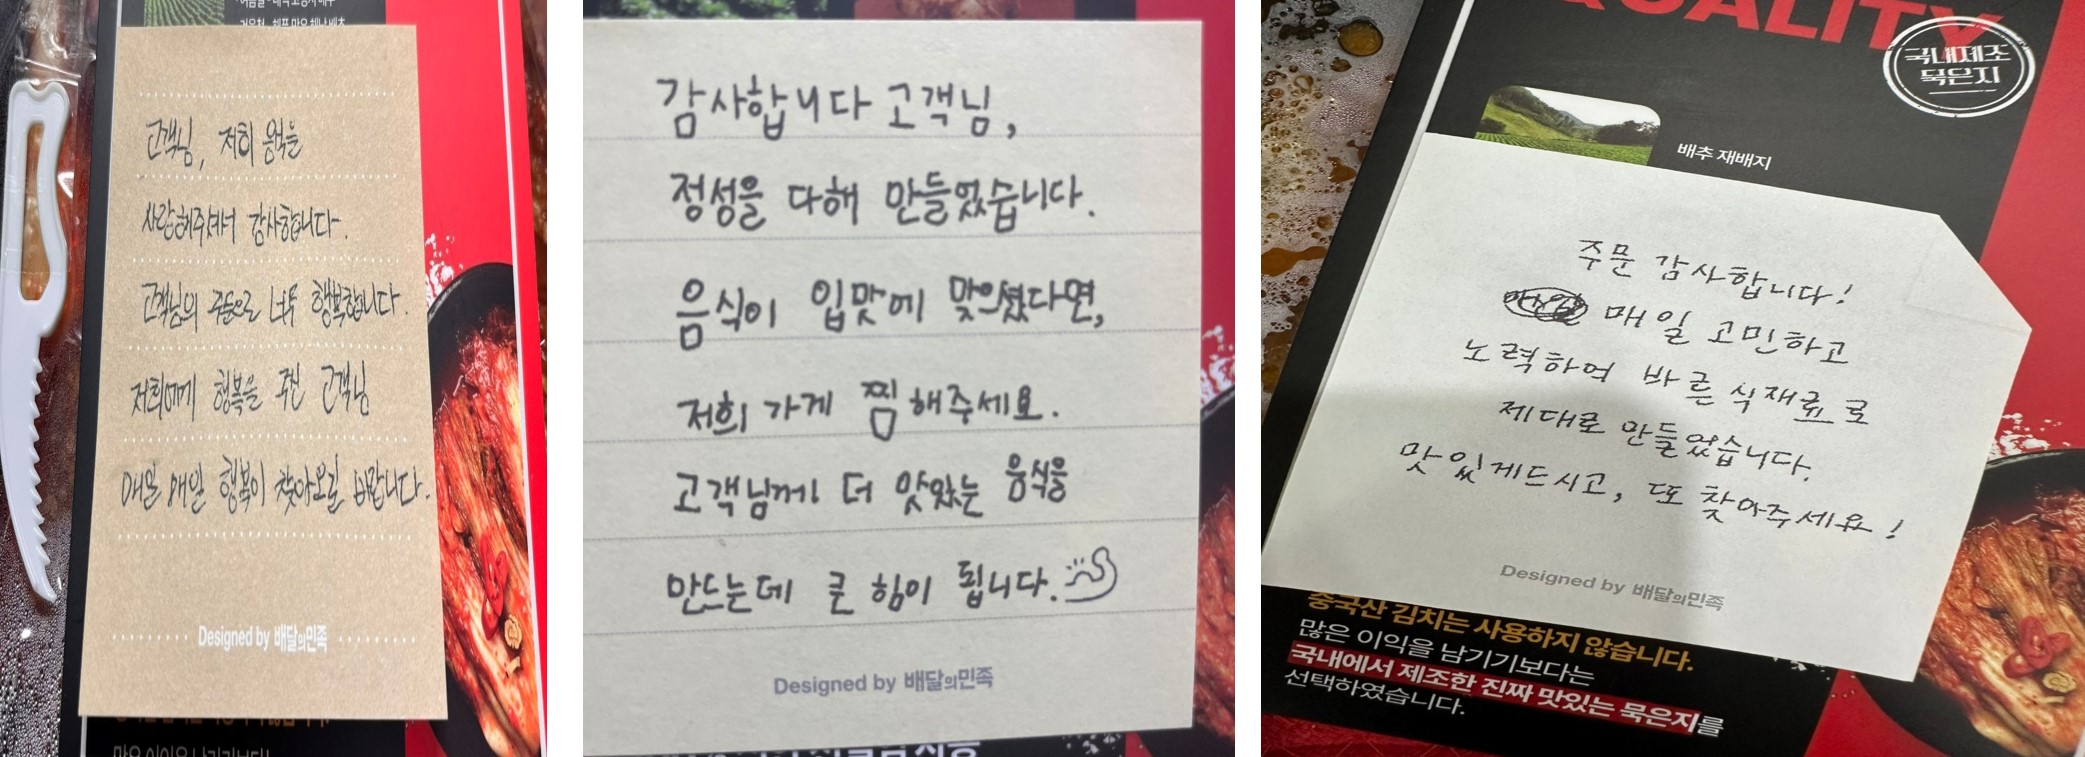 거운척 · 해풍 맞은 해남 배추
고객님, 저희 음식을
사랑해주셔서 감사합니다.
고객님의 주문으로 너무 행복합니다.
저희에게 행복을 주신 고객님
매일 매일 행복이 찾아오길 바랍니다.
Designed by 배달의민족
감사합니다 고객님,
정성을 다해 만들었습니다.
음식이 입맛에 맞으셨다면,
저희 가게 찜해주세요.
고객님께 더 맛있는 음식을
만드는데 큰 힘이 됩니다.
Designed by 배달의민족
QUALITY
국내제조
묵은지
배추 재배지
주문 감사합니다!
매일 고민하고
노력하여 바른 식재료로
제대로 만들었습니다.
맛있게드시고, 또 찾아주세요!
Designed by 배달의민족
중국산 김치는 사용하지 않습니다.
많은 이익을 남기기보다는
국내에서 제조한 진짜 맛있는 묵은지를
선택하였습니다.